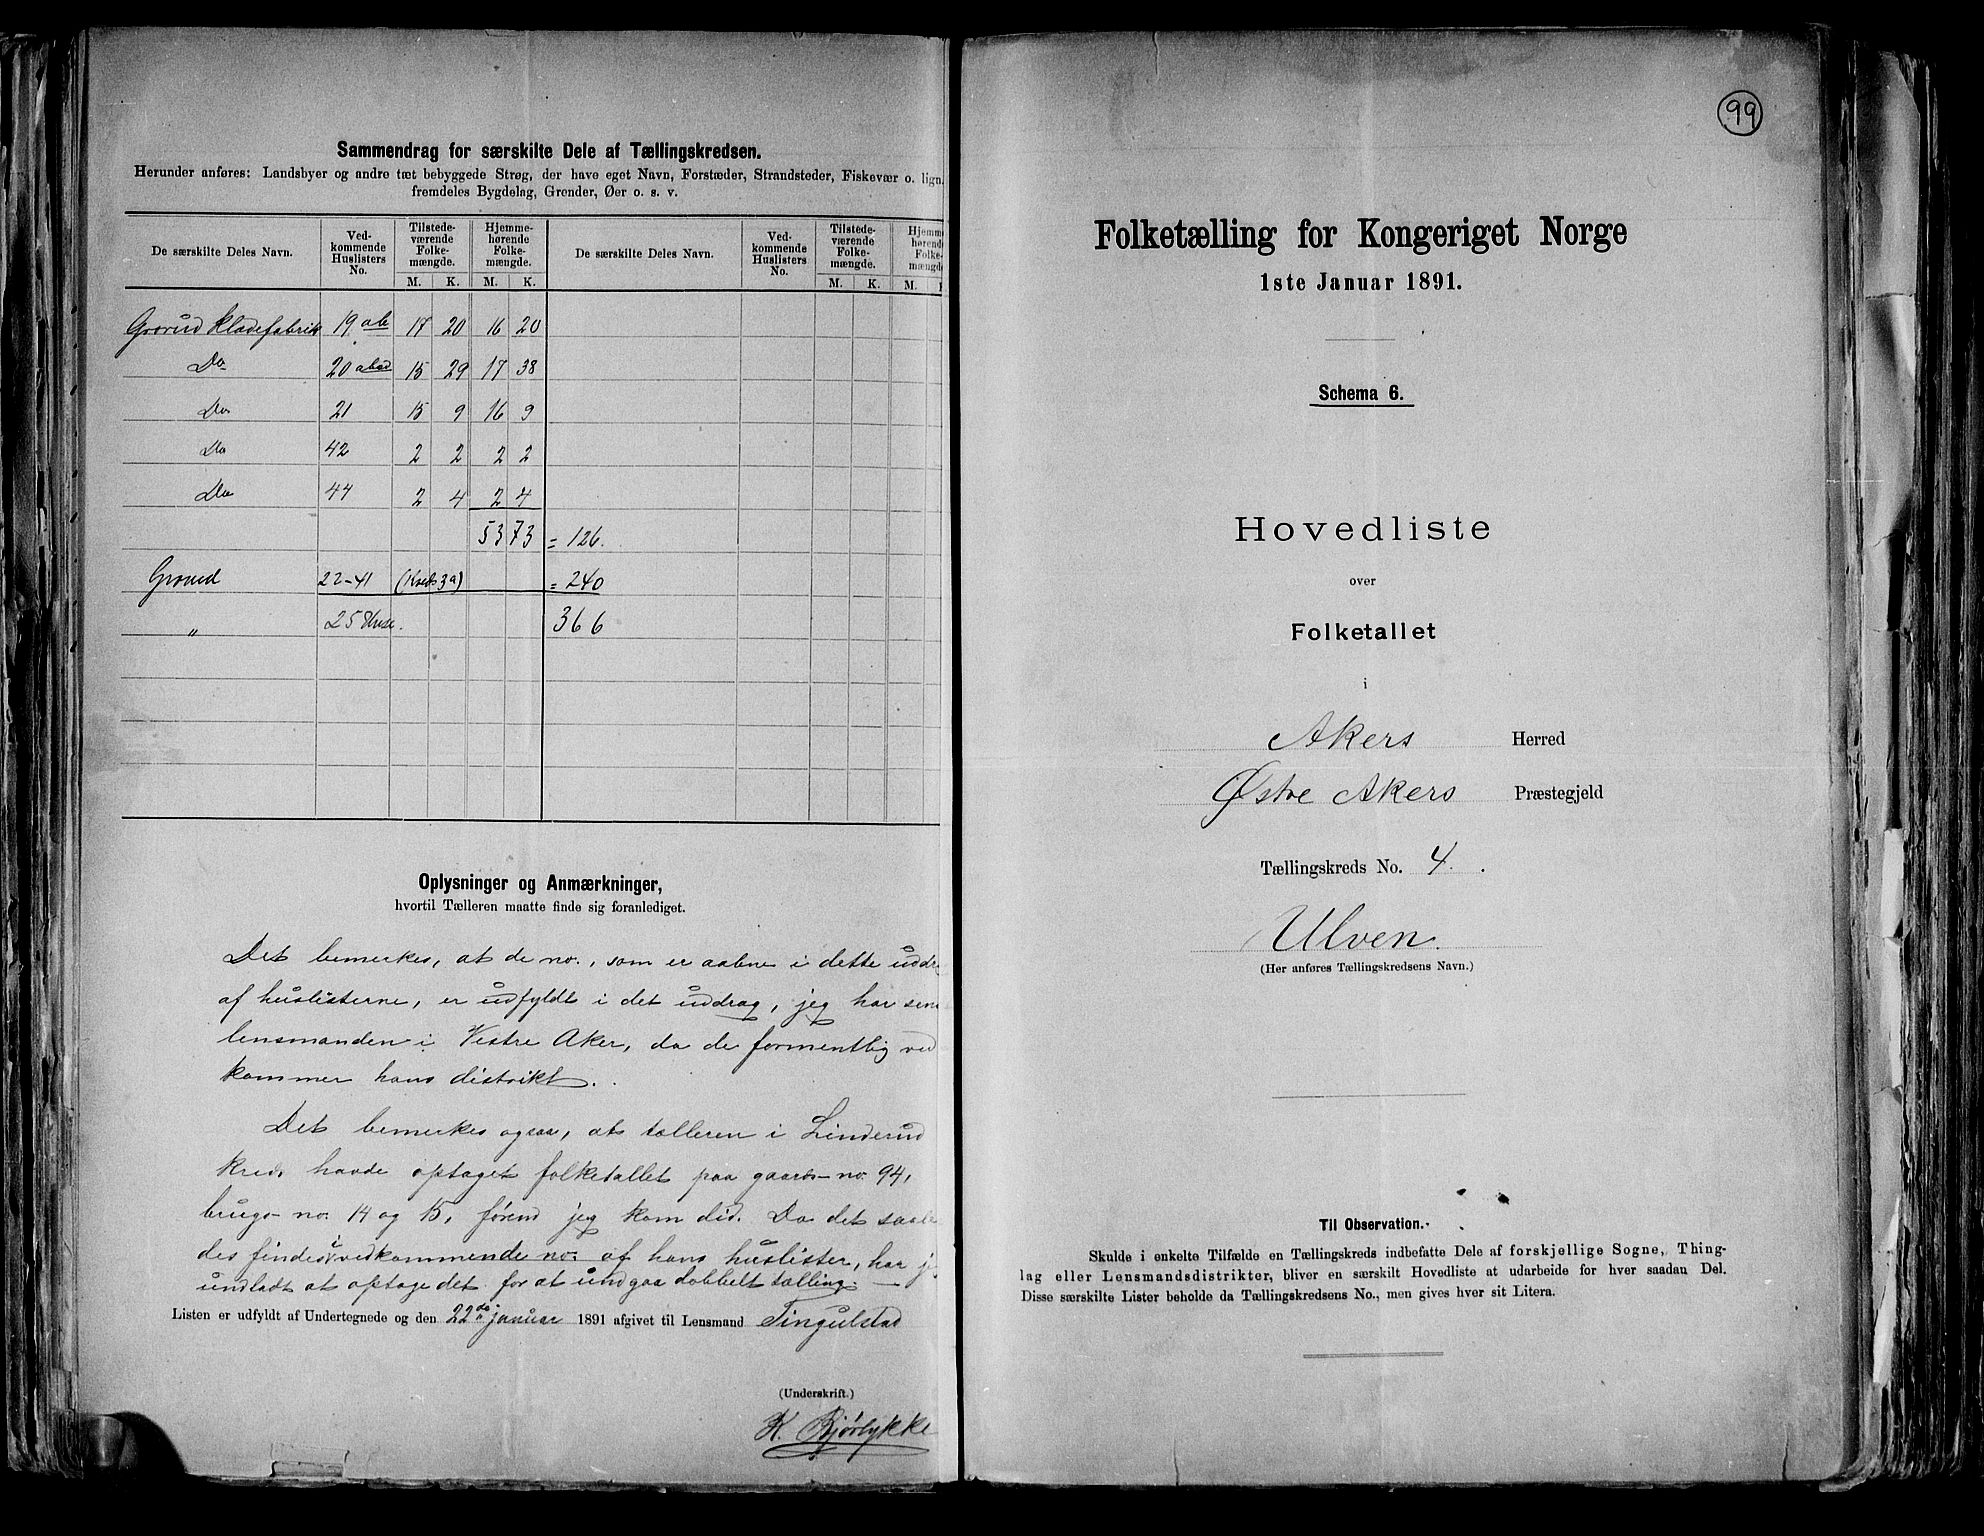 Sammendrag for særskilte Dele af Tællingskredsen.
Herunder anføres: Landsbyer og andre tæt bebyggede Strøg, der have eget Navn, Forstæder, Strandsteder, Fiskevær o. lign.
fremdeles Bygdelag, Grender, Øer o. s. v.
De særskilte Deles Navn. Ved-kommende Huslisters No. Tilstede-værende Folke-mængde. Hjemme-hørende Folke-mængde. De særskilte Deles Navn. Ved-kommende Huslisters No. Tilstede-værende Folke-mængde. Hjemme hørende Folke mængde
M. K. M. K. M. K. M.
Grorud Klædefabrik 19 ab 17 20 16 20
Do 20 abcd 15 29 17 38
Do 21 15 9 16 9
Do 42 2 2 2 2
Do 44 2 4 2 4
53 73 = 126.
Grorud 22-41 (Kreds 3a) = 240
„ 25 Huse. 366
Oplysninger og Anmærkninger,
hvortil Tælleren maatte finde sig foranlediget.
Det bemerkes, at de no., som er aabne i dette uddr
af huslisterne, er udfyldt i det uddrag, jeg har sen
lensmanden i Vestre Aker, da de formentlig ved
kommer hans distrikt.
Det bemerkes ogsaa, at tælleren i Linderud
kreds havde optaget folketallet paa gaards-no. 94,
brugs-no. 14 og 15, førend jeg kom did. Da det saale
des findes i vedkommende no. af hans huslister, har j
undladt at optage det for at undgaa dobbelt tælling.
Listen er udfyldt af Undertegnede og den 22de januar 1891 afgivet til Lensmand Tingulstad
(Underskrift.)
K. Bjørlykke
99
Folketælling for Kongeriget Norge
1ste Januar 1891.
Schema 6.
Hovedliste
over
Folketallet
i
Akers Herred
Østre Akers Præstegjeld
Tællingskreds No. 4.
Ulven.
(Her anføres Tællingskredsens Navn.)
Til Observation.
Skulde i enkelte Tilfælde en Tællingskreds indbefatte Dele af forskjellige Sogne, Thing-
lag eller Lensmandsdistrikter, bliver en særskilt Hovedliste at udarbeide for hver saadan Del.
Disse særskilte Lister beholde da Tællingskredsens No., men gives hver sit Litera.